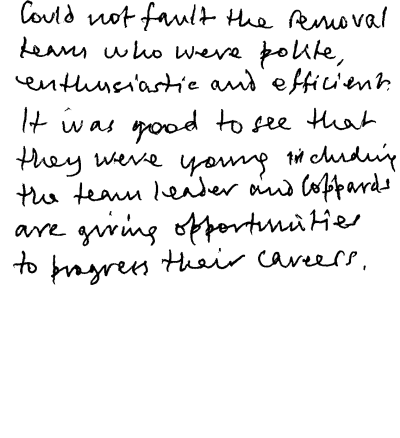 Could not fault the removal
team who were polite,
enthusiastic and efficient.
It was good to see that
they were young including
the team leader and Coppards
are giving opportunities
to progress their careers.